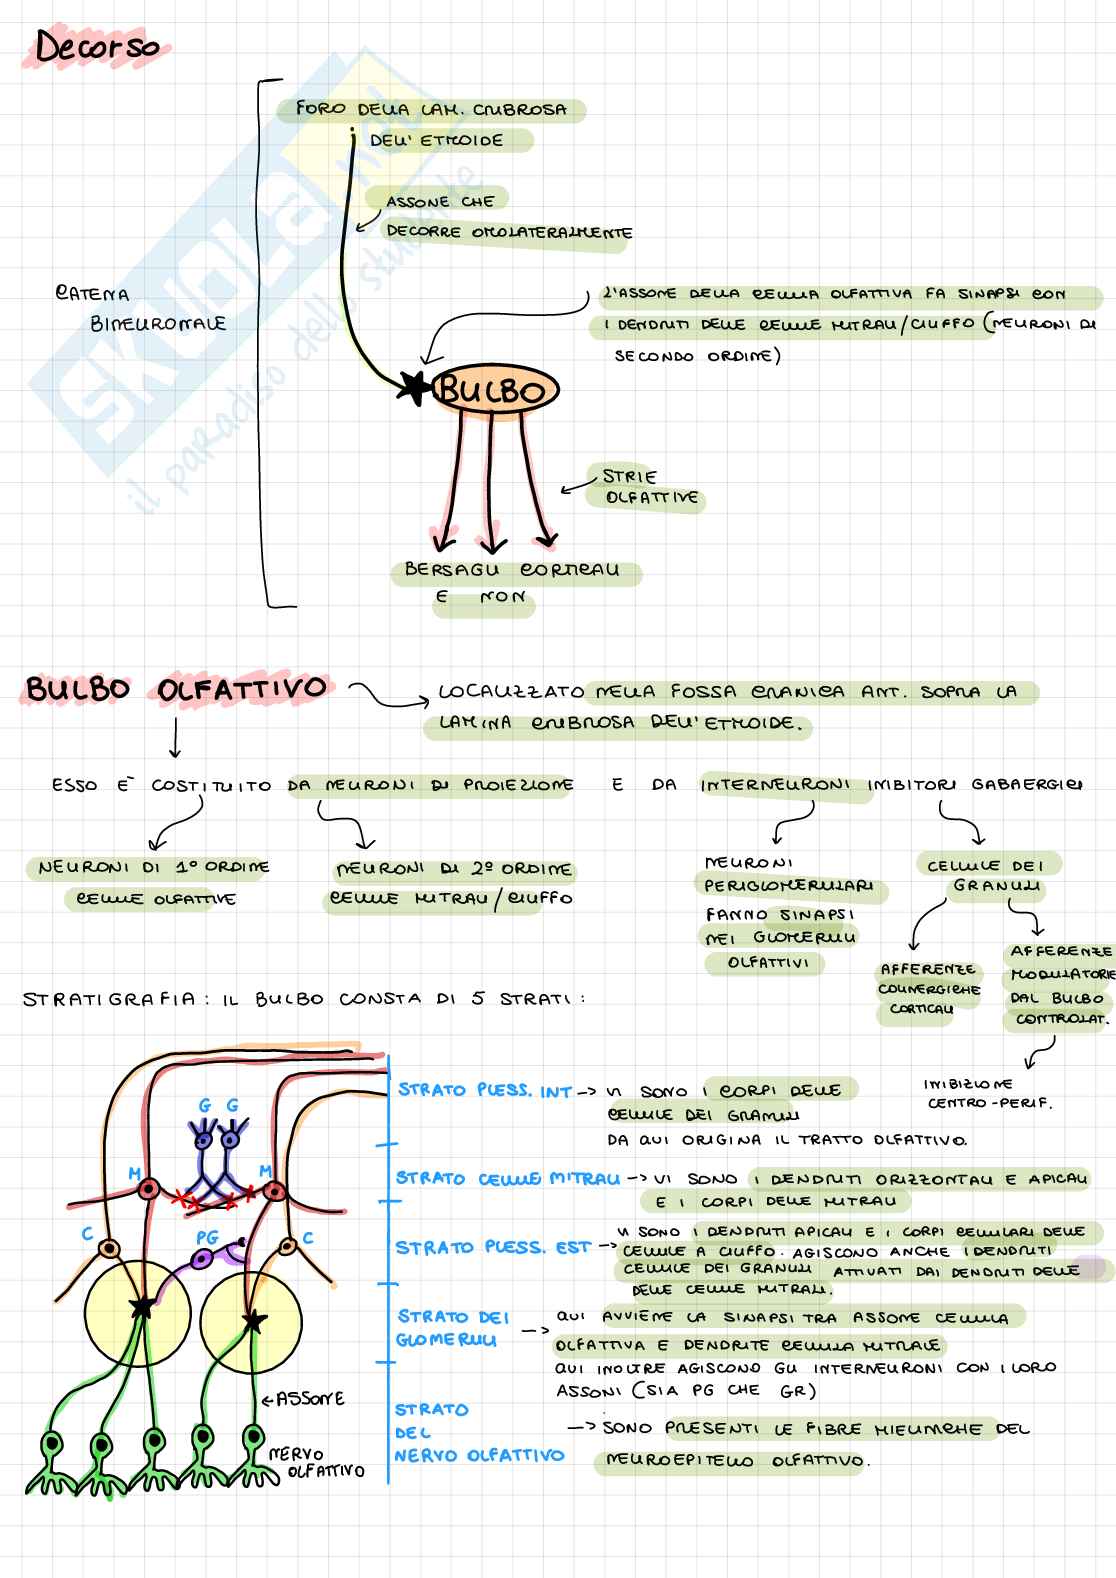 Decorso
FORO DELLA LAM. CRIBROSA
DELL' ETMOIDE
ASSONE CHE
DECORRE OMOLATERALMENTE
CATENA
BINEURONALE
L'ASSONE DELLA CELLULA OLFATTIVA FA SINAPSI CON
I DENDRITI DELLE CELLULE MITRALI/CIUFFO (NEURONI DI
SECONDO ORDINE)
BULBO
STRIE
OLFATTIVE
BERSAGLI CORTICALI
E NON
BULBO OLFATTIVO
LOCALIZZATO NELLA FOSSA CRANICA ANT. SOPRA LA
LAMINA CRIBROSA DELL'ETMOIDE.
ESSO È COSTITUITO DA NEURONI DI PROIEZIONE E DA INTERNEURONI INIBITORI GABAERGICI
NEURONI DI 1º ORDINE
CELLULE OLFATTIVE
NEURONI DI 2º ORDINE
CELLULE MITRALI/CIUFFO
NEURONI
PERIGLOMERULARI
FANNO SINAPSI
NEI GLOMERULI
OLFATTIVI
CELLULE DEI
GRANULI
AFFERENZE
COLINERGICHE
CORTICALI
AFFERENZE
MODULATORIE
DAL BULBO
CONTROLAT.
INIBIZIONE
CENTRO-PERIF.
STRATIGRAFIA: IL BULBO CONSTA DI 5 STRATI:
G G
M M
C PG C
ASSONE
NERVO
OLFATTIVO
STRATO PLESS. INT
VI SONO I CORPI DELLE
CELLULE DEI GRANULI
DA QUI ORIGINA IL TRATTO OLFATTIVO.
STRATO CELLULE MITRALI
VI SONO I DENDRITI ORIZZONTALI E APICALI
E I CORPI DELLE MITRALI
STRATO PLESS. EST
VI SONO I DENDRITI APICALI E I CORPI CELLULARI DELLE
CELLULE A CIUFFO. AGISCONO ANCHE I DENDRITI
CELLULE DEI GRANULI ATTIVATI DAI DENDRITI DELLE
DELLE CELLULE MITRALI.
STRATO DEI
GLOMERULI
QUI AVVIENE LA SINAPSI TRA ASSONE CELLULA
OLFATTIVA E DENDRITE CELLULA MITRALE
QUI INOLTRE AGISCONO GLI INTERNEURONI CON I LORO
ASSONI (SIA PG CHE GR)
STRATO
DEL
NERVO OLFATTIVO
SONO PRESENTI LE FIBRE MIELINICHE DEL
NEUROEPITELIO OLFATTIVO.
SKUOLA.net
il paradiso dello studente